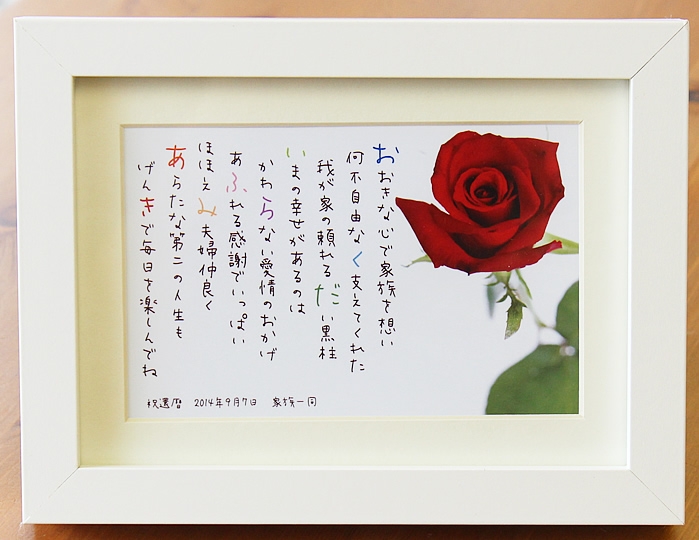 おおきな心で家族を想い
何不自由なく支えてくれた
我が家の頼れるだい黒柱
いまの幸せがあるのは
かわらない愛情のおかげ
あふれる感謝でいっぱい
ほほえみ夫婦仲良く
あらたな第二の人生も
げんきで毎日を楽しんでね
祝還暦 2014年9月7日 家族一同